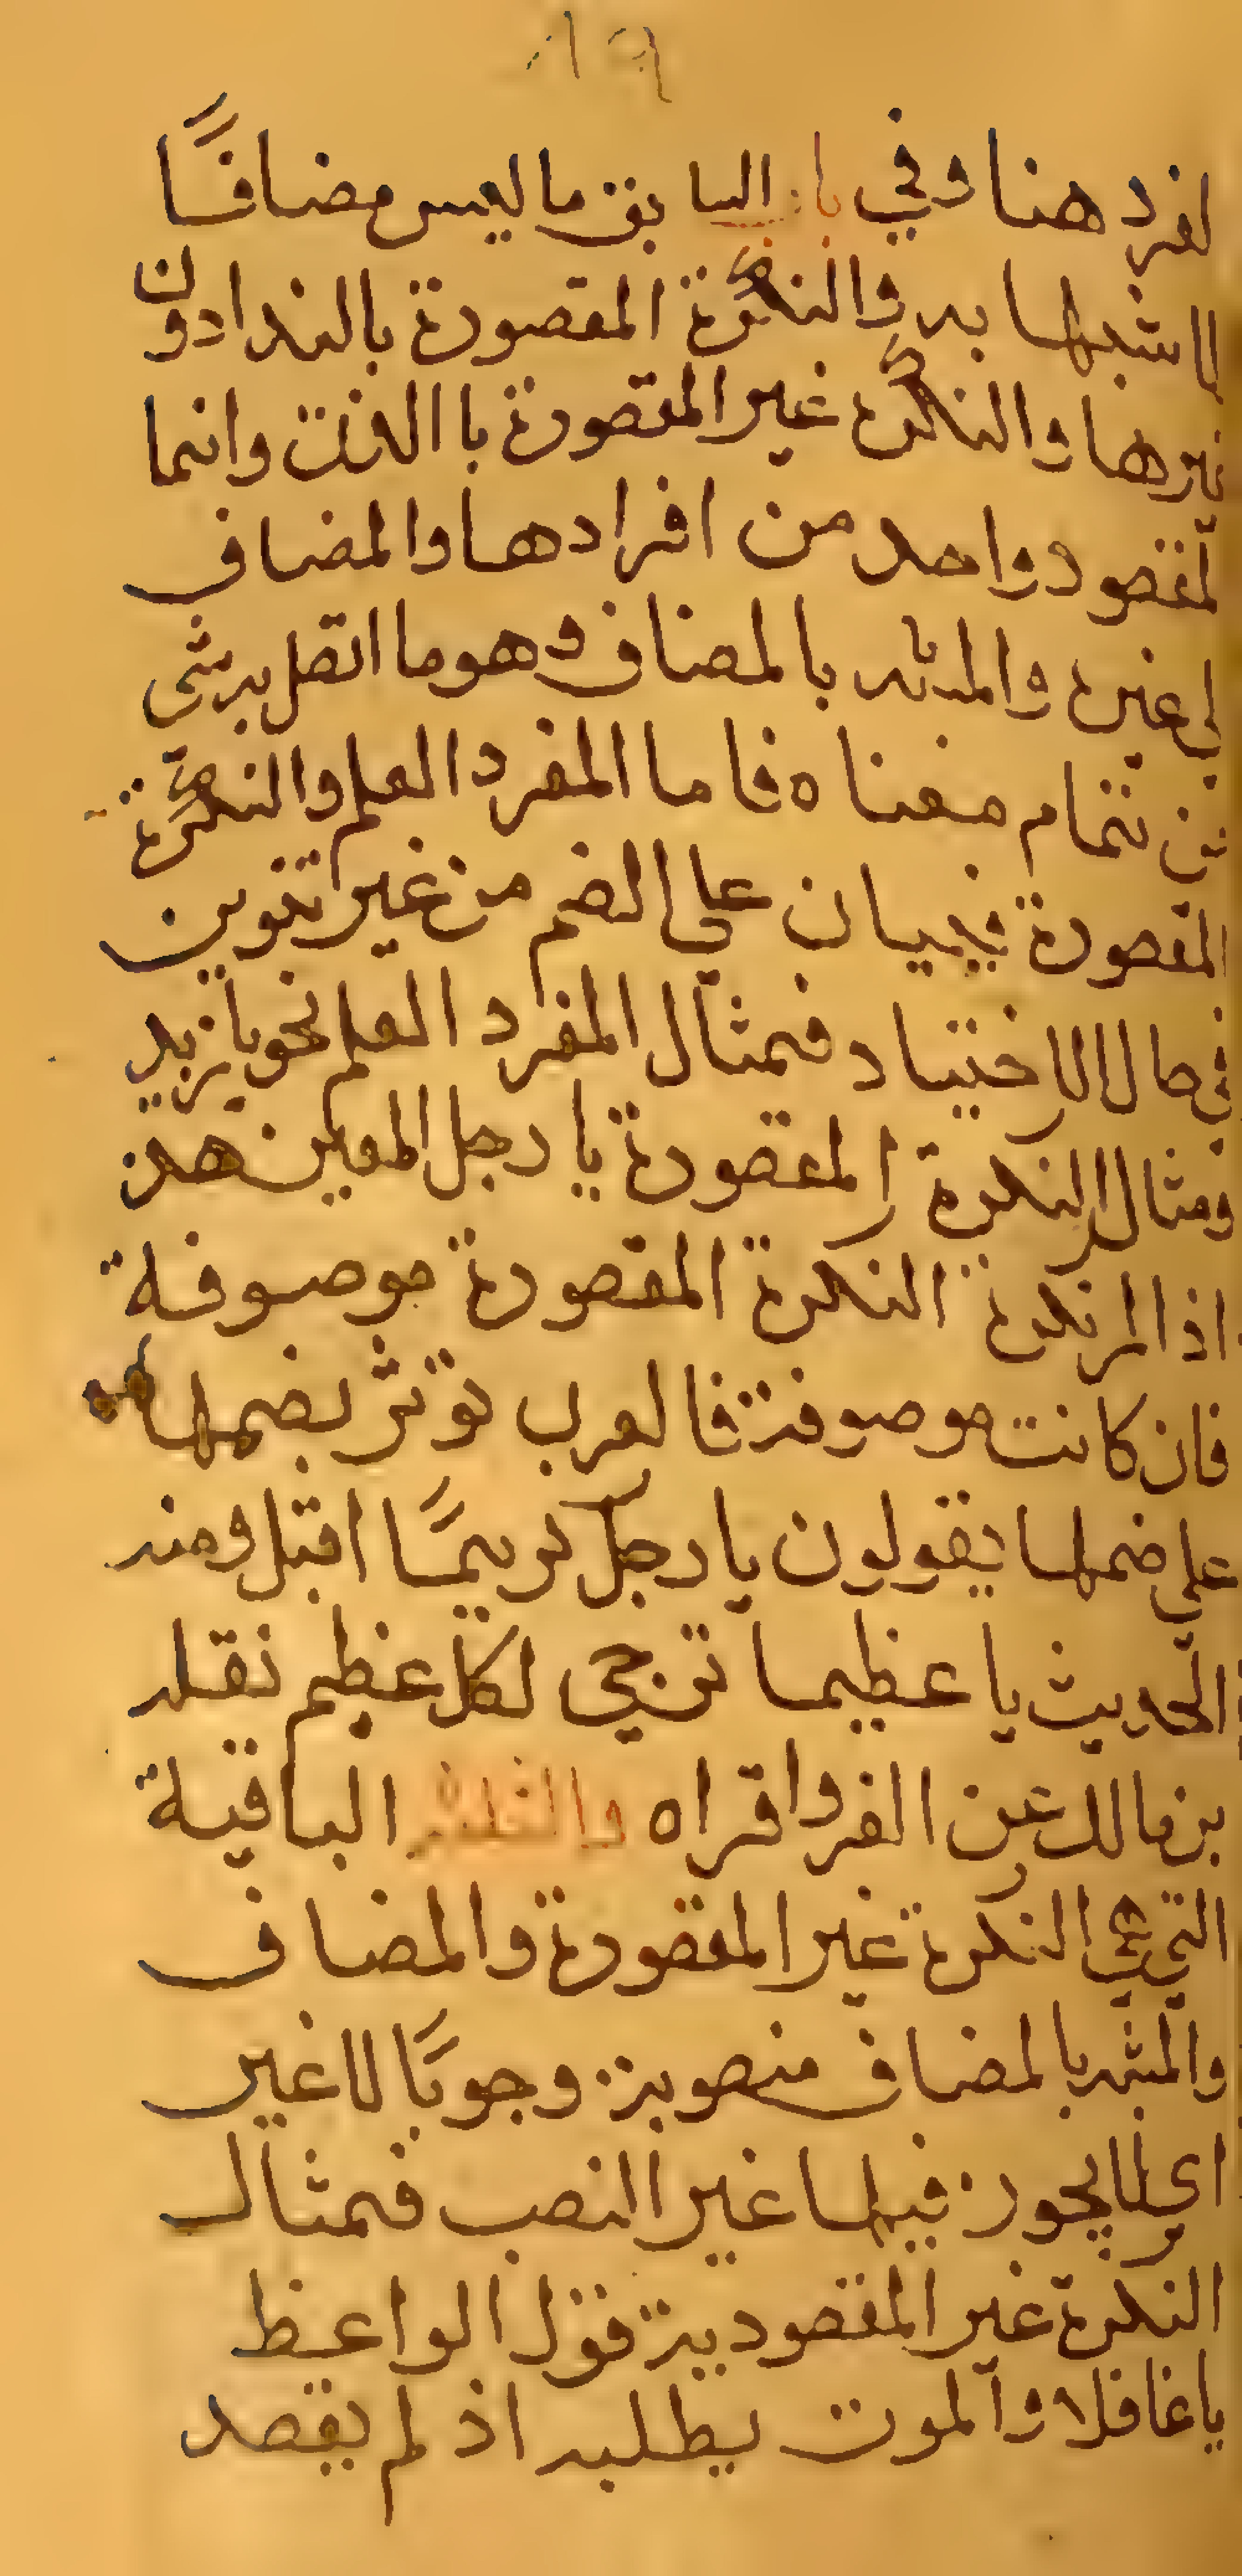 ٨٩
لفرد هنا وفي باب السابق ما ليس مضافًا
لا شبيها به والنكرة المقصودة بالندا دون
غيرها والنكرة غير المقصودة باالذات وانما
لمقصود واحد من افرادها والمضاف
لى غيره والمشبه بالمضاف وهو ما اتصل به شى
من تمام معناه فاما المفرد العلم والنكرة
المقصودة فيبنيان على الضم من غير تنوين
في حال الاختيار فمثال المفرد العلم نحو يا زيد
ومثال النكرة المقصودة يا رجل المعين هذ
اذا لم تكن النكرة المقصودة موصوفة
فان كانت موصوفة فالعرب تؤثر نصبها
على ضمها يقولون يا رجل كريمًا اقبل ومنه
الحديث يا عظيما ترجى لكل عظيم نقله
بن مالك عن الفرواقراه والثلاثة الباقية
التي هي النكرة غير المقصودة والمضاف
والمشبه بالمضاف منصوبة وجوبًا لا غير
اى لا يجوز فيها غير النصب فمثال
النكرة غير المقصودية قول الواعظ
يا غافلا والموت يطلبه اذ لم يقصد